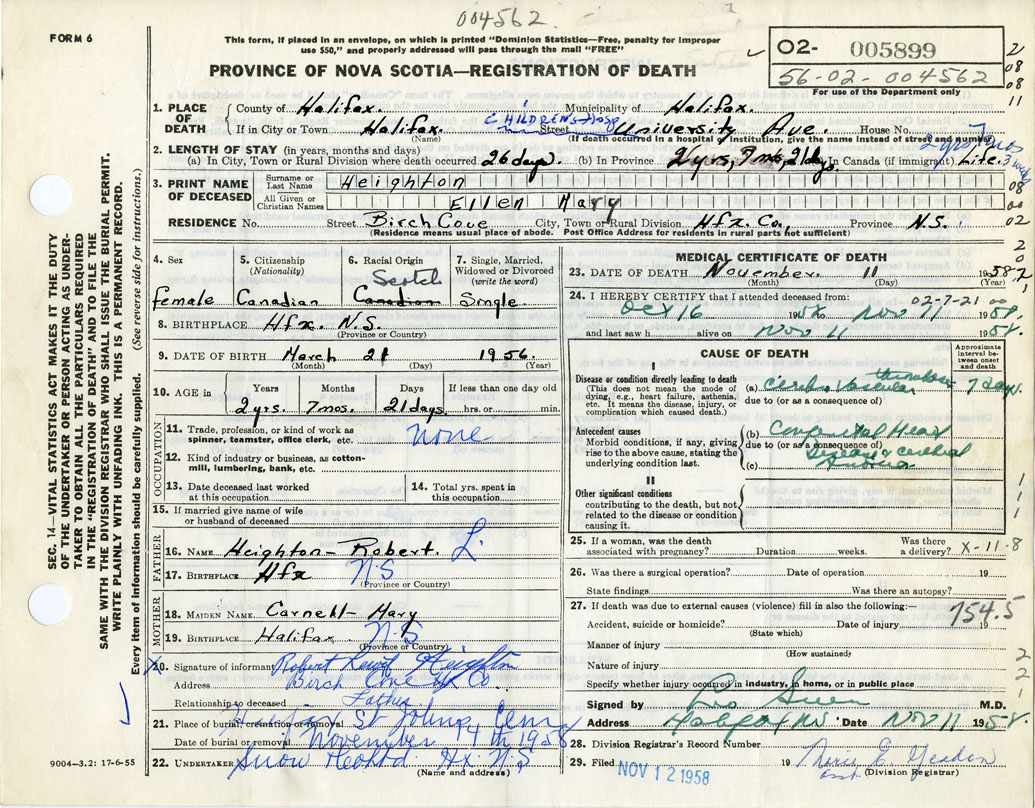 004562
FORM 6
This form, if placed in an envelope, on which is printed "Dominion Statistics—Free, penalty for improper
use $50," and properly addressed will pass through the mail "FREE"
O2- 005899
56-02-004562
For use of the Department only
PROVINCE OF NOVA SCOTIA—REGISTRATION OF DEATH
2
08
08
11
1. PLACE OF DEATH { County of Halifax. Municipality of Halifax.
If in City or Town Halifax. CHILDRENS HOSP Street University Ave. House No.
(Name) (If death occurred in a hospital or institution, give name instead of street and number)
2. LENGTH OF STAY (in years, months and days)
2 yrs, 7 mos 3 weeks
(a) In City, Town or Rural Division where death occurred 26 days. (b) In Province 2 yrs, 7 mos, 21 days. In Canada (if immigrant) Life.
3. PRINT NAME OF DECEASED { Surname or Last Name Heighton
All Given or Christian Names Ellen Mary
08
00
02
RESIDENCE No. Street Birch Cove City, Town or Rural Division Hfx. Co., Province N.S.
(Residence means usual place of abode. Post Office Address for residents in rural parts not sufficient)
4. Sex
female
5. Citizenship
(Nationality)
Canadian
6. Racial Origin
Scotch
Canadian
7. Single, Married,
Widowed or Divorced
(write the word)
Single.
8. BIRTHPLACE Hfx. N.S.
(Province or Country)
9. DATE OF BIRTH March 21 1956.
(Month) (Day) (Year)
10. AGE in Years Months Days If less than one day old
2 yrs. 7 mos. 21 days. hrs. or min.
OCCUPATION
11. Trade, profession, or kind of work as
spinner, teamster, office clerk, etc. none
12. Kind of industry or business, as cotton-
mill, lumbering, bank, etc.
13. Date deceased last worked
at this occupation
14. Total yrs. spent in
this occupation
15. If married give name of wife
or husband of deceased
FATHER
16. NAME Heighton- Robert. L.
17. BIRTHPLACE Hfx N.S
(Province or Country)
MOTHER
18. MAIDEN NAME Carnell- Mary
19. BIRTHPLACE Halifax. N.S
(Province or Country)
X
20. Signature of informant Robert Heighton
Address Birch Cove Hx Co
Relationship to deceased Father
21. Place of burial, cremation or removal St Johns Cemy
Date of burial or removal November 14th 1958
22. UNDERTAKER Snow Hx. N.S.
(Name and address)
MEDICAL CERTIFICATE OF DEATH
23. DATE OF DEATH November. 11 1958
(Month) (Day) (Year)
24. I HEREBY CERTIFY that I attended deceased from: 02-7-21 00
Oct 16 19 to Nov 11 1958.
and last saw h alive on Nov 11 1958.
CAUSE OF DEATH
Approximate
interval be-
tween onset
and death
I
Disease or condition directly leading to death
(This does not mean the mode of
dying, e.g., heart failure, asthenia,
etc. It means the disease, injury, or
complication which caused death.)
(a) Cerebro Vascular thrombosis 7 days.
due to (or as a consequence of)
Antecedent causes
Morbid conditions, if any, giving
rise to the above cause, stating the
underlying condition last.
(b) Congenital Heart
due to (or as a consequence of)
Disease & cerebral
(c) Anoxia
II
Other significant conditions
contributing to the death, but not
related to the disease or condition
causing it.
25. If a woman, was the death
associated with pregnancy? Duration weeks. Was there
a delivery? X-11-8
26. Was there a surgical operation? Date of operation 19
State findings Was there an autopsy?
27. If death was due to external causes (violence) fill in also the following:—
754.5
Accident, suicide or homicide? Date of injury 19
(State which)
Manner of injury
(How sustained)
Nature of injury
Specify whether injury occurred in industry, in home, or in public place
Signed by M.D.
Address Halifax NS Date Nov 11 1958.
28. Division Registrar's Record Number
29. Filed NOV 12 1958 19
(Division Registrar)
SEC. 14—VITAL STATISTICS ACT MAKES IT THE DUTY
OF THE UNDERTAKER OR PERSON ACTING AS UNDER-
TAKER TO OBTAIN ALL THE PARTICULARS REQUIRED
IN THE "REGISTRATION OF DEATH" AND TO FILE THE
SAME WITH THE DIVISION REGISTRAR WHO SHALL ISSUE THE BURIAL PERMIT.
WRITE PLAINLY WITH UNFADING INK. THIS IS A PERMANENT RECORD.
Every item of information should be carefully supplied. (See reverse side for instructions.)
9004—3.2: 17-6-55